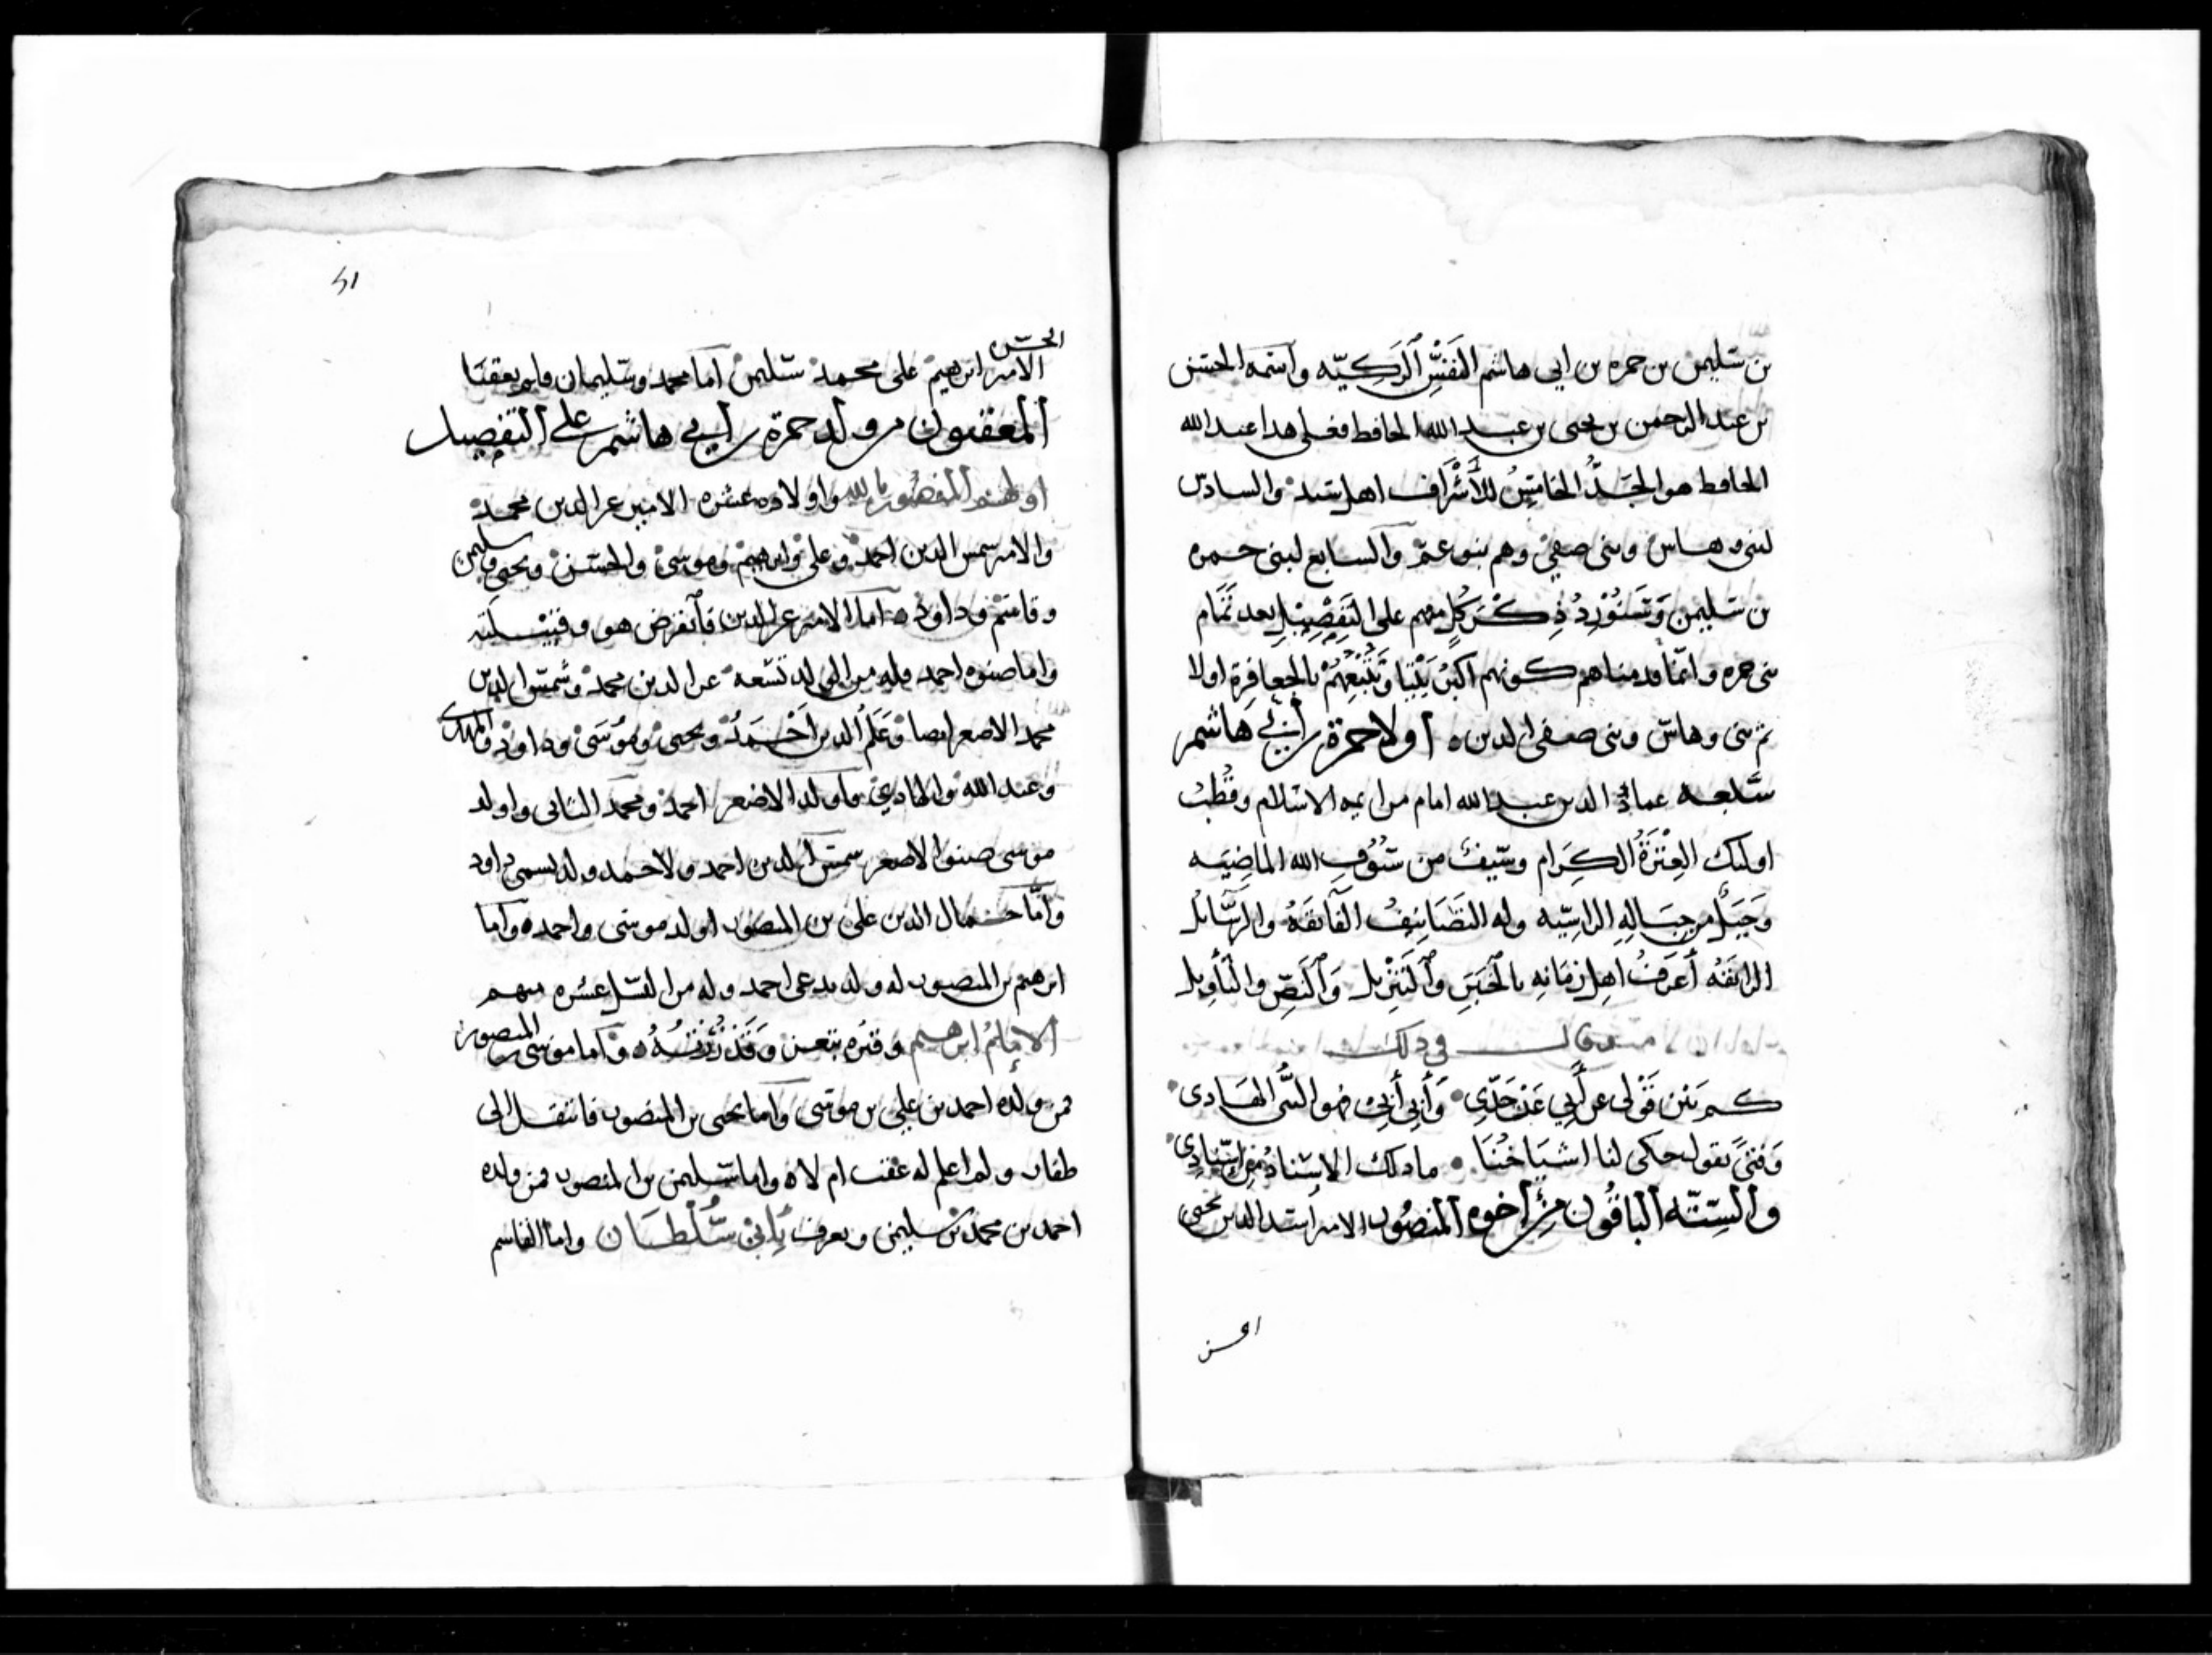 بن سليمن بن حمزه بن ابي هاشم النفس الزكيه واسمه الحسن
بن عبد الرحمن بن يحيى بن عبد الله الحافظ فعلى هذا عبد الله
الحافظ هو الجد الخامس للأشراف اهل والسادس
لبنى وهاس وبنى صفي وهم بنو عم والسابع لبنى حمزه
بن سليمن وسنورد ذكر كل منهم على التفصيل بعد تمام
بنى حمزه وانما قدمناهم كونهم اكبر بيتا ونتبعهم بالجعافرة اولا
ثم بنى وهاس وبنى صفى الدين ه اولاد حمزة بن أبي هاشم
سبعه عماد الدين عبد الله امام من ايمه الاسلام وقطب
اوليك العترة الكرام وسيف من سيوف الله الماضيه
وجبل من جباله الراسيه وله التصانيف الفائقة والرسائل
الرائقة أعرف اهل زمانه بالخبر والتنزيل والنص والتأويل
وقال في ذلك
كم بين قولى عن أبي عن جدي وأبي أبي فهو النبى الهادى
وفتى يقول حكى لنا اشياخنا ما ذلك الاسناد من إسنادي
والسته الباقون من أخوه المنصور الامير اسد الدين يحيى
الحسن
51
الحسن
الامير ابرهيم على محمد سليمن اما محمد وسليمان فلم يعقبا
المعقبون من ولد حمزة بن أبي هاشم على التفصيل
اولهم المنصور بالله واولاده عشره الامير عز الدين محمد
والامير شمس الدين احمد وعلى وابرهيم وموسى والحسن ويحيى وسليمن
وقاسم وداود ه اما الامير عز الدين فانقرض هو وقبيلته
واما صنوه احمد فله من الولد تسعه عز الدين محمد وشمس الدين
محمد الاصغر ايضا وعلم الدين أحمد ويحيى وموسى وداود والمهدى
وعبد الله والهادي فاولد الاصغر احمد ومحمد الثانى واولد
موسى صنو الاصغر شمس الدين احمد ولاحمد ولد يسمى داود
وأما جمال الدين على بن المنصور اولد موسى واحمد ه واما
ابرهيم بن المنصور له ولد يدعى احمد وله من النسل عشره منهم
الإمام ابرهيم وقبره بتعز وقد زرته ه واما موسى بن المنصور
فمن ولده احمد بن علي بن موسى واما يحيى بن المنصور فانتقل الى
ظفار ولم اعلم له عقب ام لا ه واما سليمن بن المنصور فمن ولده
احمد بن محمد بن سليمن ويعرف بابن سلطان واما القاسم